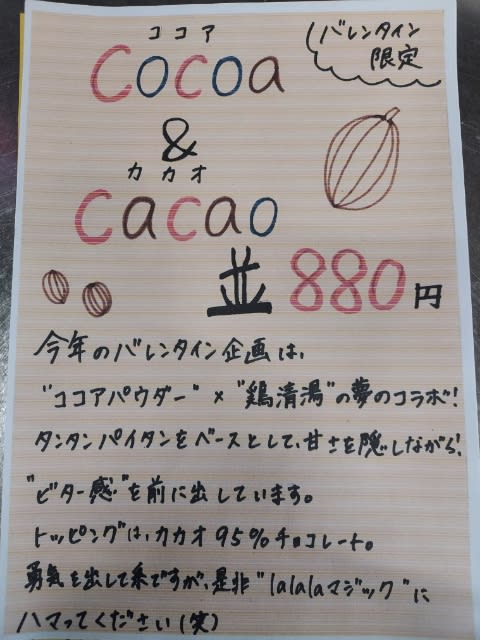 バレンタイン
限定
ココア
Cocoa
&
カカオ
Cacao
並 880円
今年のバレンタイン企画は、
"ココアパウダー"×"鶏清湯"の夢のコラボ!
タンタンパイタンをベースとして、甘さを隠しながら!
"ビター感"を前に出しています。
トッピングは、カカオ95%チョコレート。
勇気を出して系ですが、是非"lalalaマジック"に
ハマってください(笑)